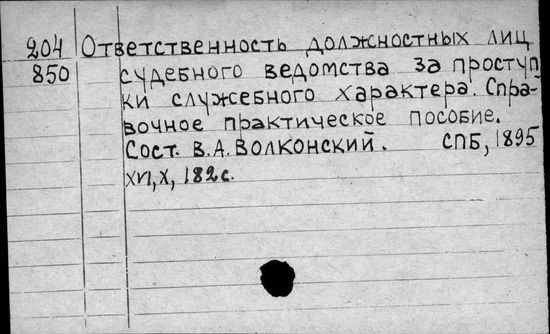 204 Ответственность должностных лиц
850 судебного ведомства за проступ
ки служебного характера. Спра-
вочное практическое пособие.
Сост. В.А.Волконский. СПБ, 1895
XVI, X, 182 с.